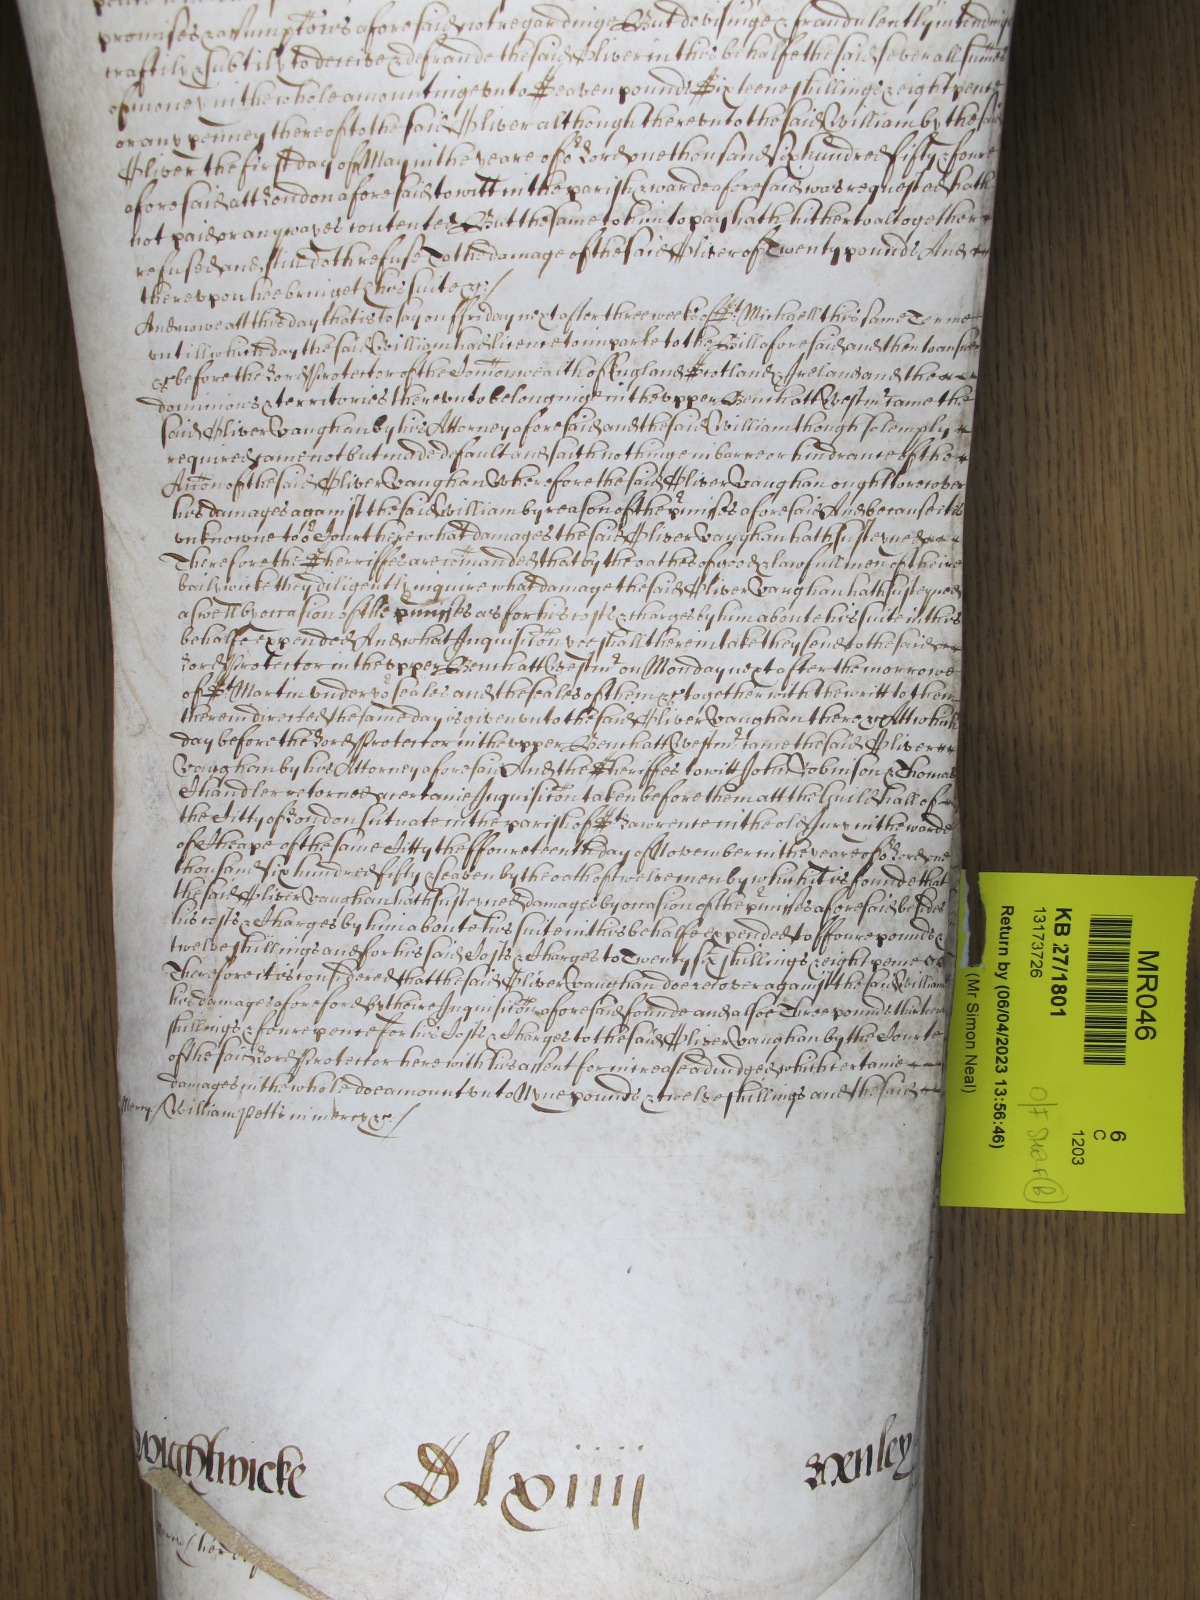 promises & assumptions aforesaid not regardinge But devisinge & fraudulently intendinge
craftily & subtilly to deceive & defraude the said Oliver in this behalfe the said severall summes
of money in the whole amountinge unto Seaven pounds Sixteene shillings & eight pence
or any penney thereof to the said Oliver although thereunto the said William by the said
Oliver the first day of May in the yeare of or Lord one thousand six hundred fifty & foure
aforesaid att London aforesaid to witt in the parish & warde aforesaid was requested hath
not paid or any wayes contented But the same to him to pay hath hitherto altogether
refused and still doth refuse To the damage of the said Oliver of Twenty pounds And
thereupon hee bringeth his suite &c /
And nowe att this day that is to say on ffriday next after three weekes of St Michaell this same Terme
untill which day the said William had licence to imparle to the Bill aforesaid and then to answer
&c before the Lord Protector of the Comonwealth of England Scotland & Ireland and the
dominions & territories thereunto belonginge in the upper Bench att Westmr came the
said Oliver Vaughan by his Attorney aforesaid and the said William though solemply
required came not but made default and saith nothinge in barre or hindrance of the
Accon of the said Oliver Vaughan Wherefore the said Oliver Vaughan ought to recover
his damages against the said William by reason of the pmisses aforesaid And because it is
unknowne to or Court here what damages the said Oliver Vaughan hath susteyned
Therefore the Sherriffes are comanded that by the oathes of good & lawfull men of theire
bailywicke they diligently enquire what damage the said Oliver Vaughan hath susteyned
aswell by occasion of the pmisses as for his costs & charges by him about his suite in this
behalfe expended And what Inquisicon yee shall therein take they send to the said
Lord Protector in the upper Bench att Westmr on Monday next after the morrowe
of St Martin under yor seales and the seales of them &c together with the writt to them
therein directed the same day is given unto the said Oliver Vaughan there &c Att which
day before the Lord Protector in the upper Bench att Westmr came the said Oliver
Vaughan by his Attorney aforesaid And the Sheriffes to witt John Robinson & Thomas
Chandler retorned a certaine Inquisicon taken before them att the Guildhall of
the Citty of London scituate in the parish of St Lawrence in the old Jury in the warde
of Cheape of the same Citty the ffourteenth day of November in the yeare of or Lord one
thousand six hundred fifty & seaven by the oath of twelve men by which it is founde that
the said Oliver Vaughan hath susteyned damages by occasion of the pmisses aforesaid besides
his costs & Charges by him about his suite in this behalfe expended to ffoure pounds &
twelve shillings and for his said Costs & Charges to Twenty six shillings & eight pence
Therefore it is considered that the said Oliver Vaughan doe recover against the said William
his damages aforesaid by theire Inquisicon aforesaid founde and alsoe Three pounds thirteen
shillings & foure pence for his Costs & Charges to the said Oliver Vaughan by the Courte
of the said Lord Protector here with his assent for increase adiudged which certaine
damages in the whole doe amount unto Nyne pounds & twelve shillings and the said
Mercy / William Petts in mercy &c /
Wightwicke Dlxiiii Henley
MR046
KB 27/1801
13173726
Return by (06/04/2023 13:56:46)
(Mr Simon Neal)
6
C
1203